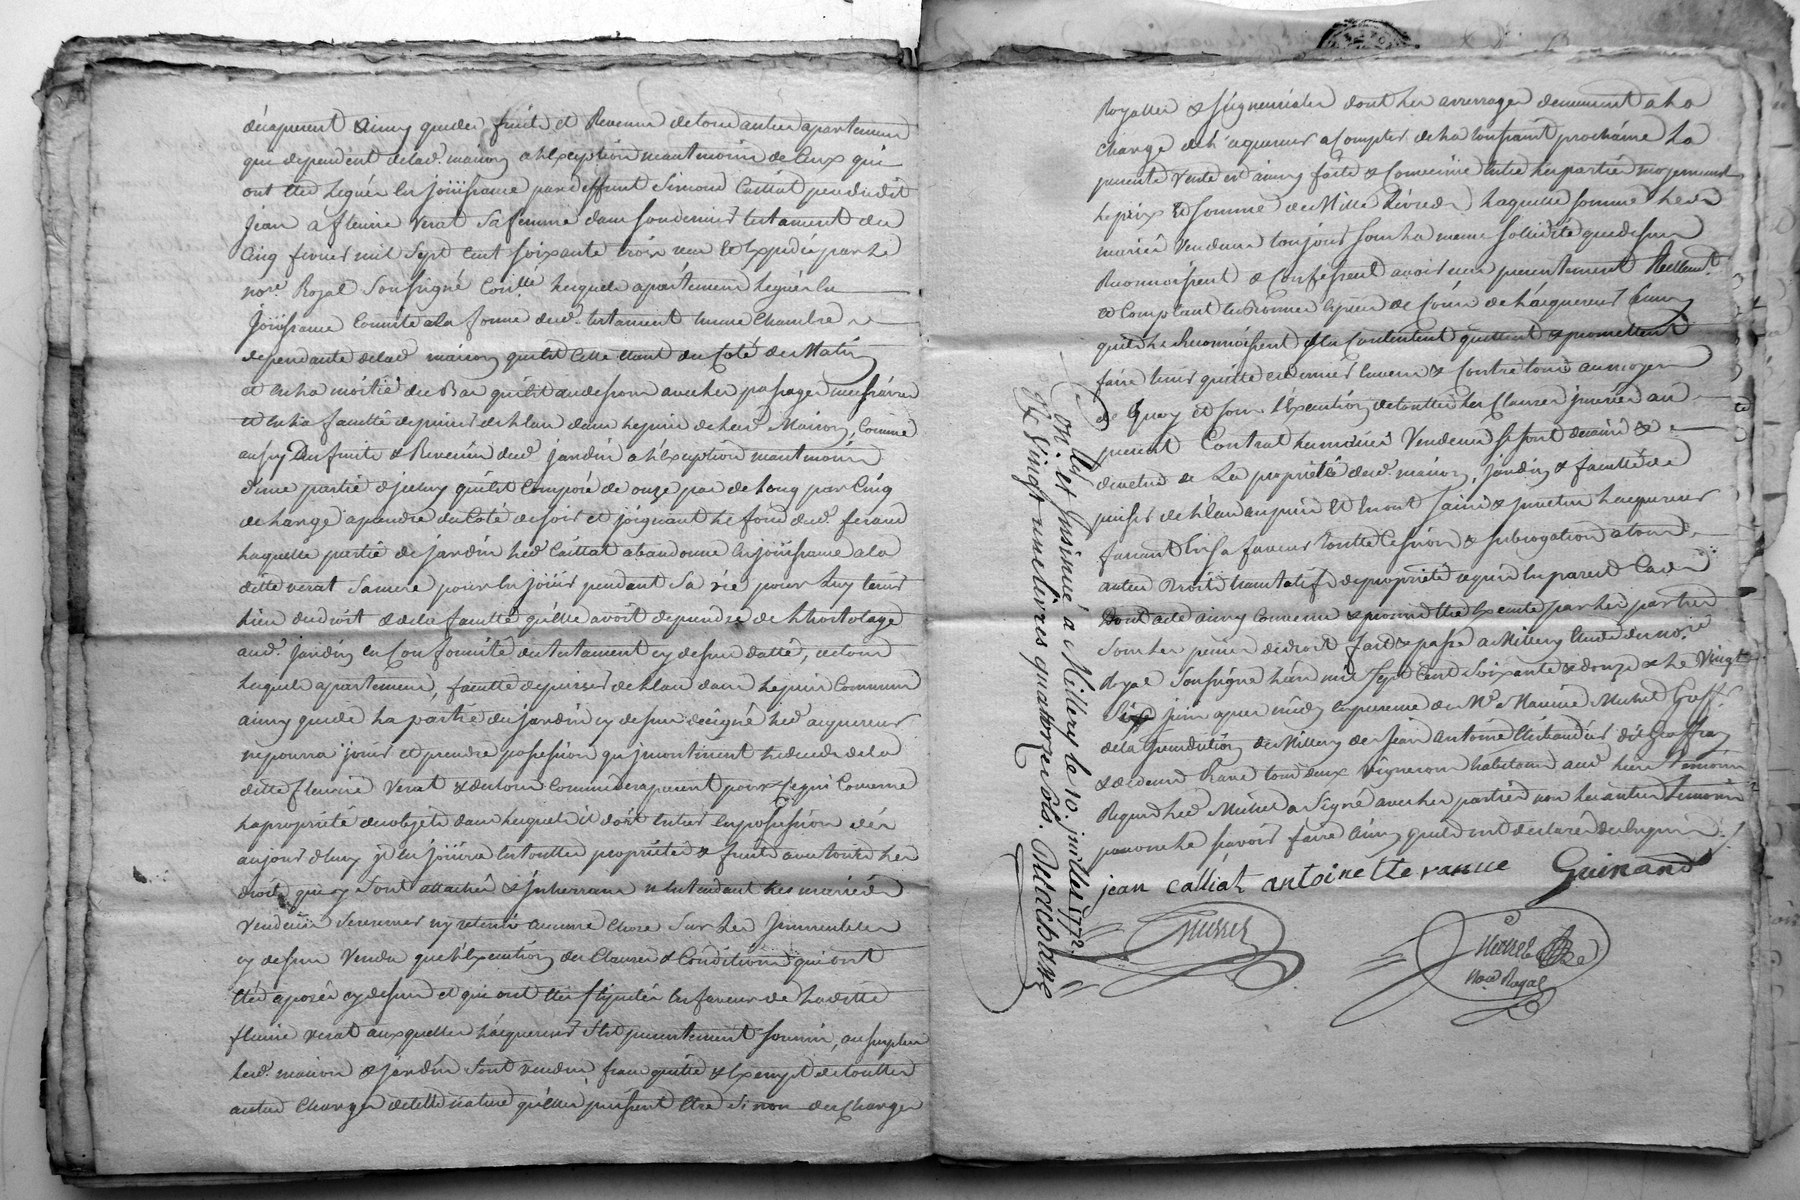 dèsapresent & ainsy que des fruits et Revenus de tous autres apartemens
qui dependent de lad. maison a l'Exception neantmoins de Ceux qui
ont étés legués en joüissance par deffunt Simond Calliat pere dudit
jean a fleurie Verat sa femme dans son dernier testament du
Cinq fevrier mil Sept Cent soixante trois reçu et Expedié par le
nore. Royal Soussigné Contllé lesquels apartemens legués en
Joüissance Consiste a la forme dud. testament en une Chambre
dependante de lad. maison qu'est Celle étant du Coté de Matin
et en la moitié du Bas qu'est au dessous avec les passages necessaires
et en la faculté de puiser de l'eau dans le puis de lad. Maison, Comme
aussy Des fruits & Revenus dud. jardin a l'Exception neantmoins
d'une partie d'jceluy qu'est Composé de onze pas de long par Cinq
de large a prendre du Coté de soir et joignant le fond dud. ferand
laquelle partie de jardin led. Calliat abandonne en joüissance a la
ditte verat sa mere pour en joüir pendant sa vie pour luy tenir
lieu du droit & de la faculté qu'elle avoit de prendre de l'hortolage
aud. jardin en Conformité du testament cy dessus datté, de tous
lesquels apartemens, faculté de puiser de l'eau dans le puis Commun
ainsy que de la partie du jardin cy dessus désigné led. aquereur
ne pourra joüir et prendre possession qu'jncontinent le decès de la
ditte fleurie Verat & de tous Comme dèsapresent pour Ce qui Concerne
la propriété des objets dans lesquels il doit entrer en possession dès
aujourd'huy jl en joüira en toutte propriété & fruits avec touts les
droits qui y sont attachés & jnherrans n'entendant les mariés
vendeurs se reserver ny retenir aucune Chose sur les Jmmeubles
cy dessus Vendu que l'Execution des Clauses & Conditions qui ont
étés aposées cy dessus et qui ont étés stipulés en faveur de laditte
fleurie verat auxquelles l'acquereur s'est presentement soumis, au surplus
lesd. maison & jardin sont vendus franc quitte & Exempt de touttes
autres Charges de telle nature qu'elles puissent être Sinon des Charges
Royalles & seigneuriales dont les arrerages demeurent a la
charge de l'aquereur a Compter de la toussaint prochaine la
presente vente est ainsy faite & Convenüe entre les parties moyennant
le prix et somme de Mille Livres laquelle somme lesd.
mariés Vendeurs toujours sous la meme sollidité que dessus
Reconnoissent & Confessent avoir reçu presentement Réellemt.
et Comptant en Bonnes Espèces de Cours de l'acquereur ainsy
qu'ils le Reconnoissent s'en Contentent quittent & promettent
faire tenir quitte envers & Contre tous au moyen
de Quoy et sous l'Execution de touttes les Clauses jnserées au
present Contrat les mariés Vendeurs se sont demis &
devetus de La propriété dud. maison, jardin & faculté de
puiser de l'eau au puis et en ont saisi & jnvetu l'aquereur
faisant En sa faveur Toutte Cession & subrogation a tous
autres Droits translatifs de propriété requis en pareil Cas
Dont acte ainsy Convenu & promis être Executé par les parties
sous les peines de droit fait & passé a Millery Etude du nore.
Royal Soussigné l'an mil Sept Cent Soixante & douze & le Vingt
Six juin apres midy En presence de Me. Maurice Michel Greff.
de la jurisdiction de Millery de jean antoine
& de Tous deux Vignerons habitans aud. lieu témoins
Requis led. Michel a signé avec les parties non les autres temoins
pour ne le savoir faire ainsy qu'ils ont declaré de ce requis ./.
jean calliat antoinette ranue Guinand
Michel
Nore Royal
Con. lé. et Jnsinué a Millery le 10. juillet 1772
R. Vingt une livres quatorze sols.